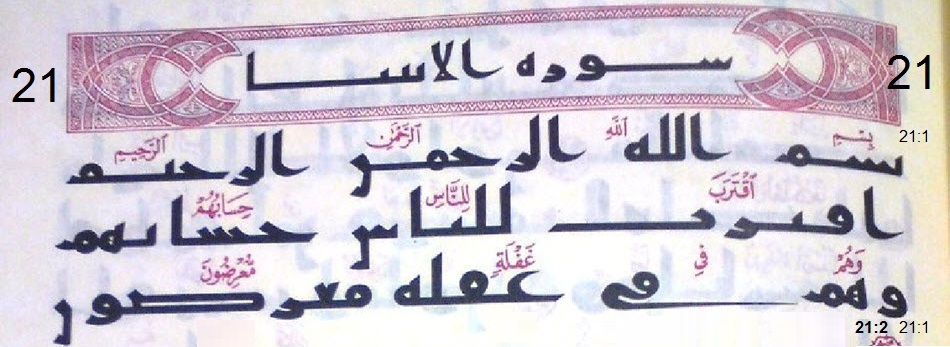 21 سوره الانبيا 21
بِسْمِ ٱللَّهِ ٱلرَّحْمَٰنِ ٱلرَّحِيمِ 21:1
بسم الله الرحمن الرحيم
ٱقْتَرَبَ لِلنَّاسِ حِسَابُهُمْ
اقترب للناس حسابهم
وَهُمْ فِي غَفْلَةٍ مُعْرِضُونَ
وهم في غفله معرضون
21:2 21:1